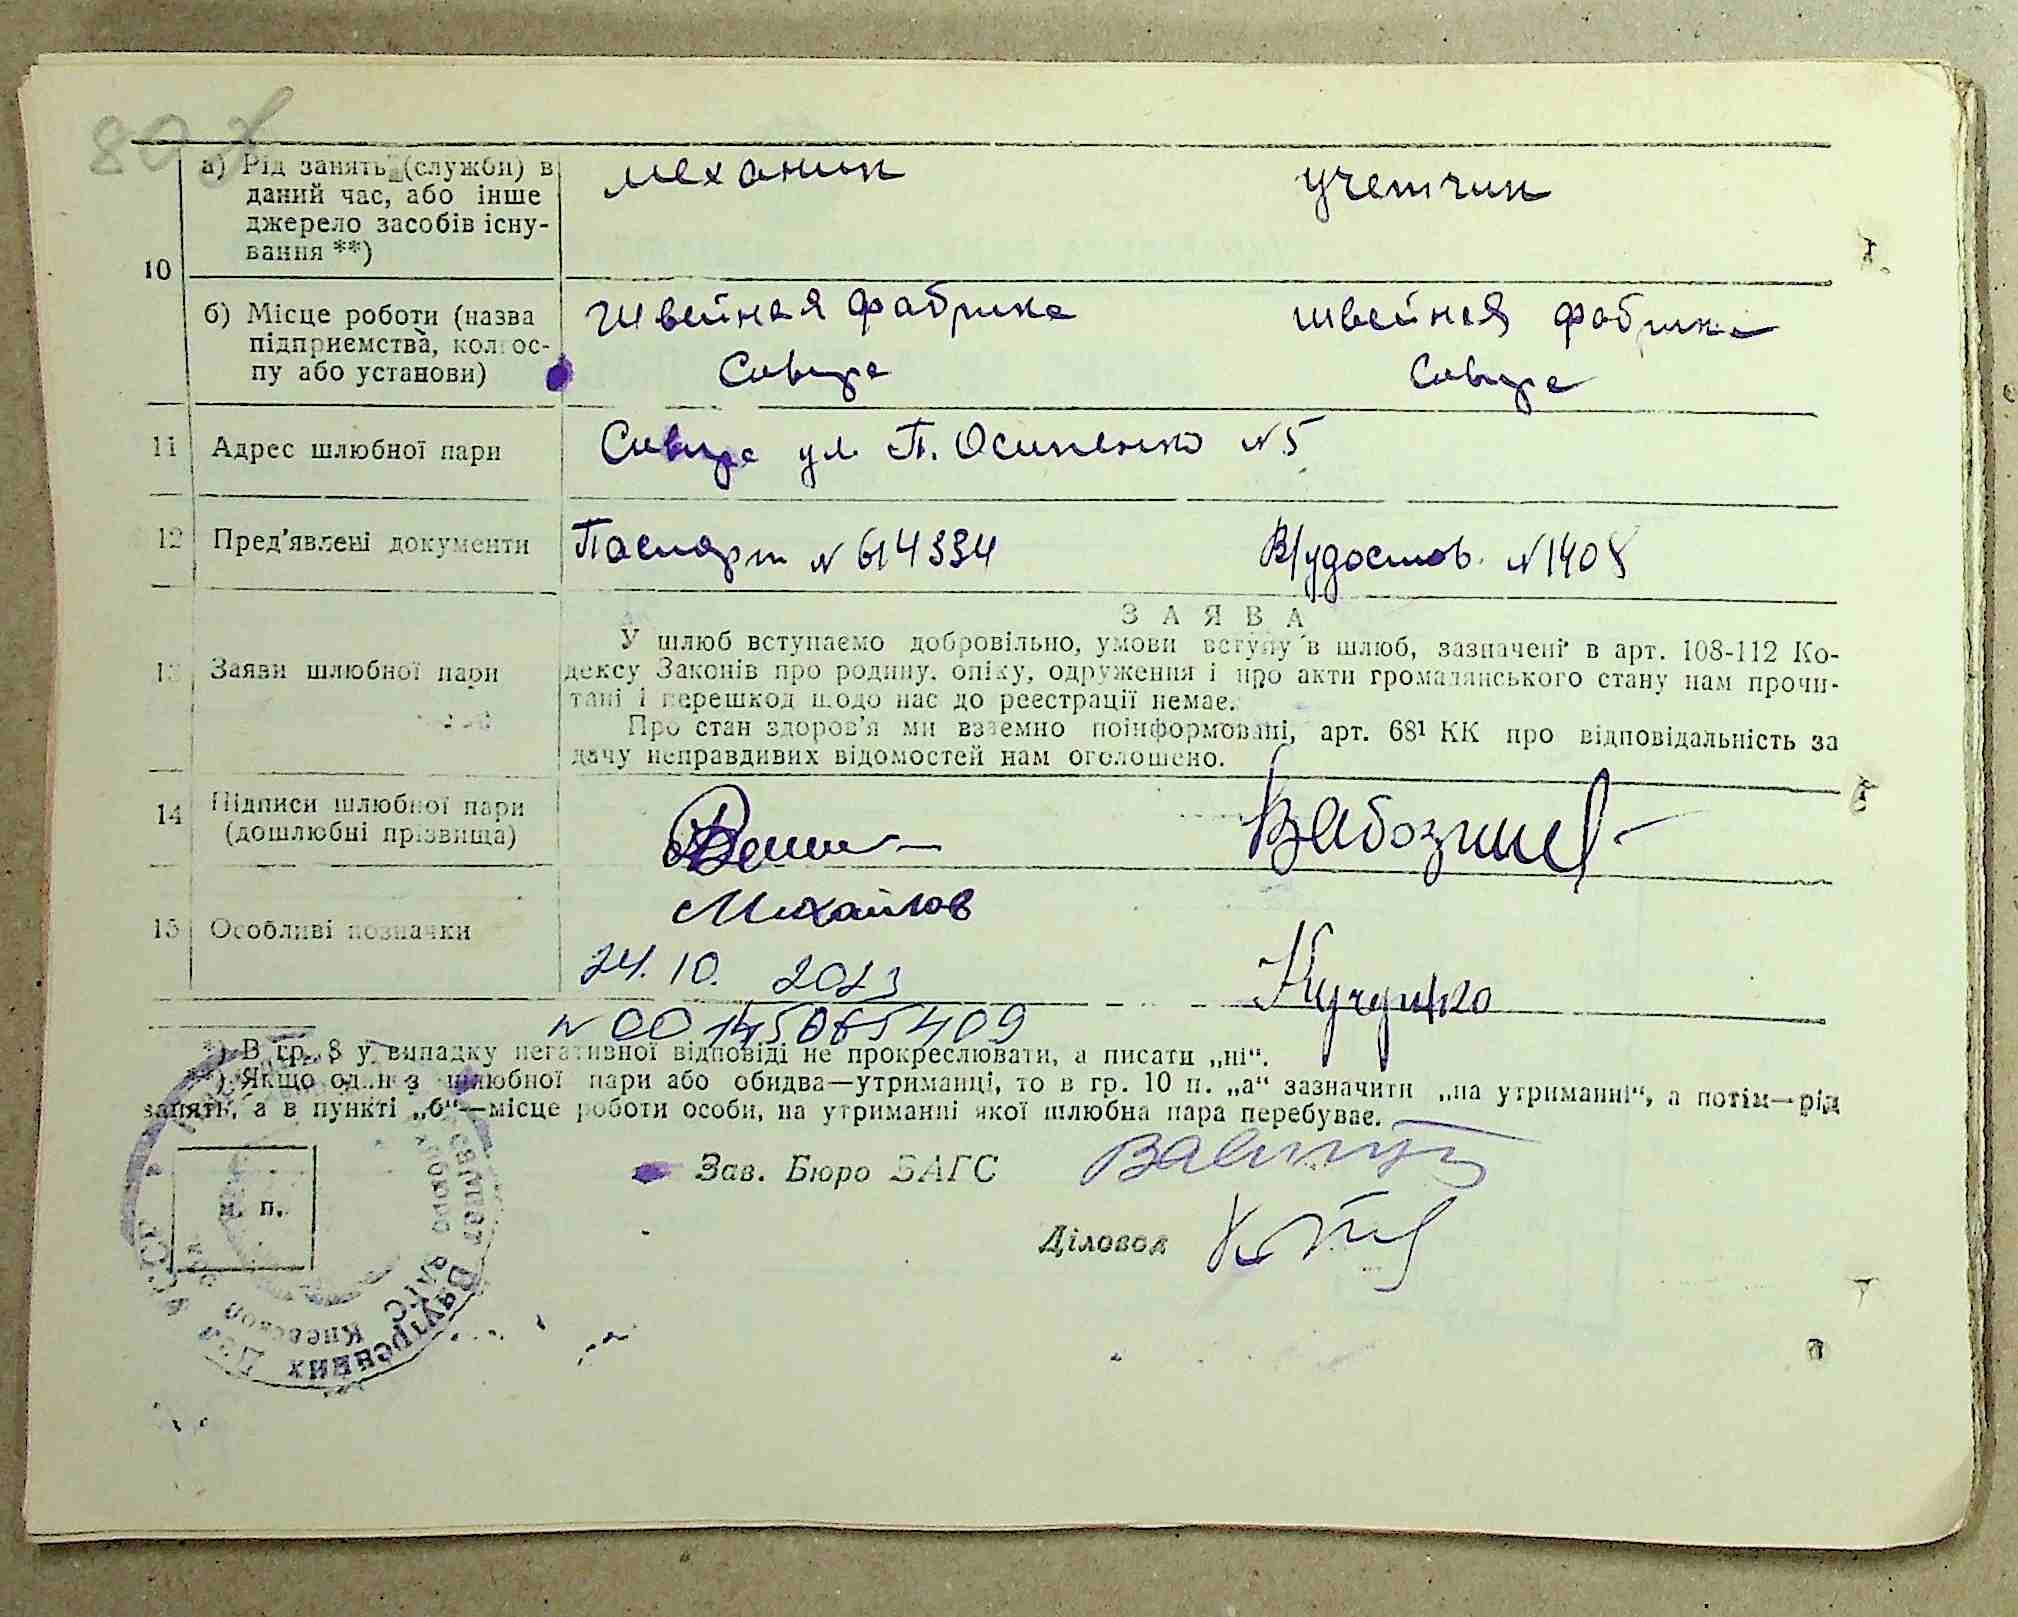 807
10
а) Рід занять (служби) в даний час, або інше джерело засобів існування **)
механик
учетчик
б) Місце роботи (назва підприємства, колгоспу або установи)
Швейная фабрика
Сквира
швейная фабрика
Сквира
11 Адрес шлюбної пари
Сквира ул П. Осипенко №5
12 Пред'явлені документи
Паспорт № 614334
В/удостов. №1408
13 Заяви шлюбної пари
ЗАЯВА
У шлюб вступаємо добровільно, умови вступу в шлюб, зазначені в арт. 108-112 Ко-
дексу Законів про родину, опіку, одруження і про акти громадянського стану нам прочи-
тані і перешкод щодо нас до реєстрації немає.
Про стан здоров'я ми взаємно поінформовані, арт. 68¹ КК про відповідальність за
дачу неправдивих відомостей нам оголошено.
14 Підписи шлюбної пари
(дошлюбні прізвища)
15 Особливі позначки
Михайлов
24. 10. 2023
№ 00145065409
*) В гр. 8 у випадку негативної відповіді не прокреслювати, а писати „ні“.
**) Якщо один з шлюбної пари або обидва—утриманці, то в гр. 10 п. „а“ зазначити „на утриманні“, а потім—рід
занять, а в пункті „б“—місце роботи особи, на утриманні якої шлюбна пара перебуває.
Зав. Бюро ЗАГС
м. п.
Діловод
Внутренних Дел
ЗАГС
Киевской